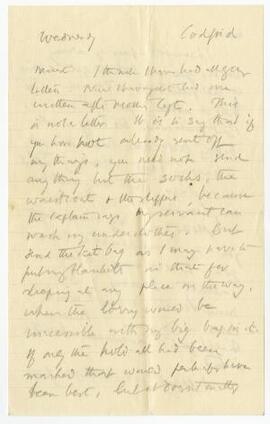 Wednesday Codford
Dearest I think I have had all your
letters. Now I have just had one
written after Mother left. This
is not a letter. It is to say that if
you have not already sent off
my things, you need not send
anything but the socks, the
waistcoat & the slippers, because
the captain says my servant can
wash my underclothes. But
send the kit bag as I may have to
put my blankets in that for
sleeping at any place on the way,
when the lorry would be
inaccessible with my big bag in it.
If only the hold all had been
marked that would perhaps have
been best, but it doesn't matter